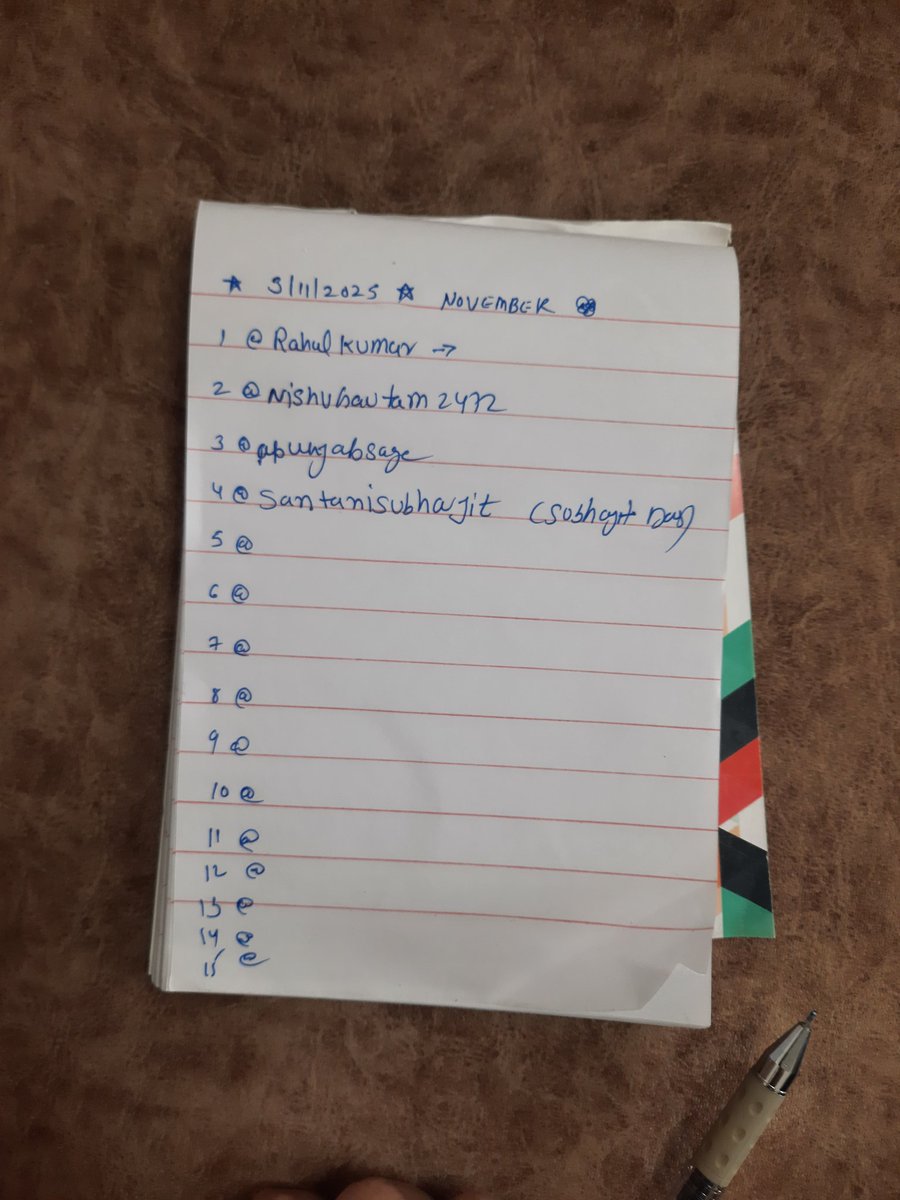 ☆ 3/11/2025 ☆ NOVEMBER
1 @ Rahul Kumar →
2 @ Nishugautam 2472
3 @ ppunjabsage
4 @ Santanisubhajit (Sobhajit Das)
5 @
6 @
7 @
8 @
9 @
10 @
11 @
12 @
13 @
14 @
15 @